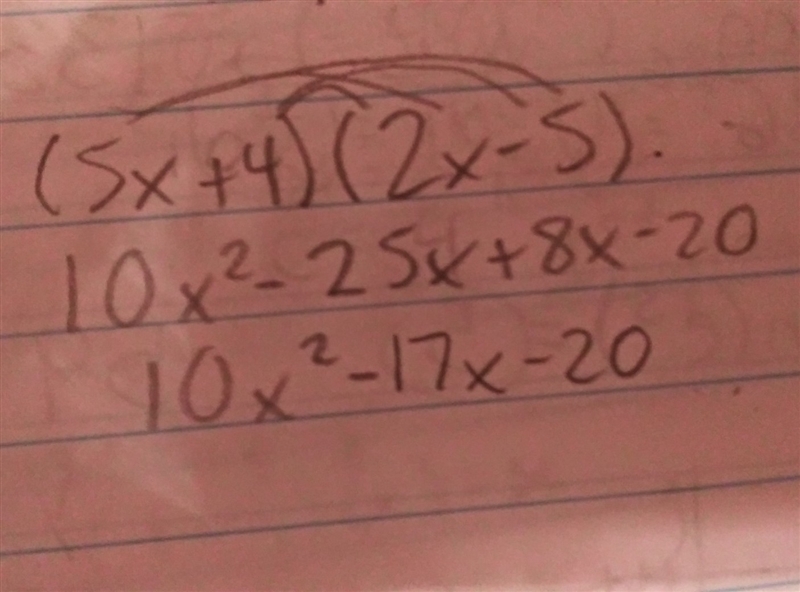 (5x+4)(2x-5).
10x²-25x+8x-20
10x²-17x-20